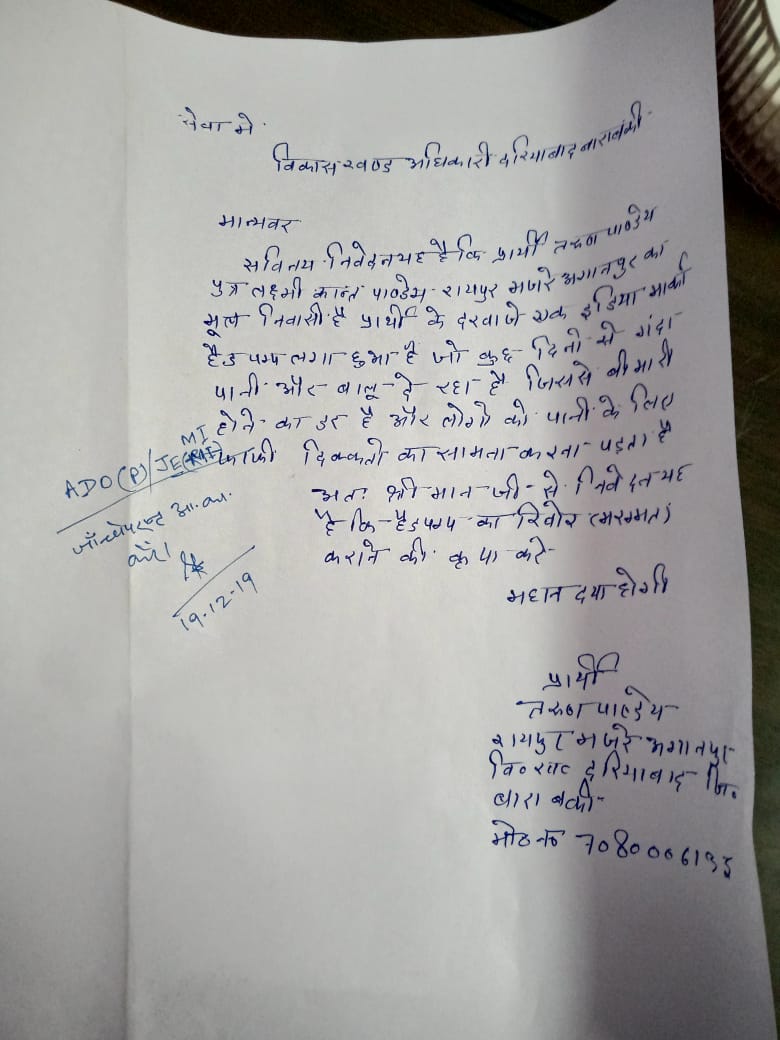 सेवा मे
विकास खण्ड अधिकारी दरियाबाद बाराबंकी
मान्यवर
सविनय निवेदन यह है कि प्रार्थी तरुण पाण्डेय
पुत्र लक्ष्मी कान्त पाण्डेय रायपुर मजरे अगानपुर का
मूल निवासी है प्रार्थी के दरवाजे एक इडिया मार्का
हैड पम्प लगा हुआ है जो कुछ दिनो से गंदा
पानी और बालू दे रहा है जिससे बीमारी
होने का डर है और लोगो को पानी के लिए
काफी दिक्कतो का सामना करना पड़ता है
अतः श्री मान जी से निवेदन यह
है कि हैडपम्प का रिबोर (मरम्मत)
कराने की कृपा करे
महान दया होगी
ADO(P)/JE(MI)
जाँचोपरान्त आ. का.
करें।
19.12.19
प्रार्थी
तरुण पाण्डेय
रायपुर मजरे अगानपुर
वि० खण्ड दरियाबाद जि०
बाराबंकी
मो० न० 7080006195